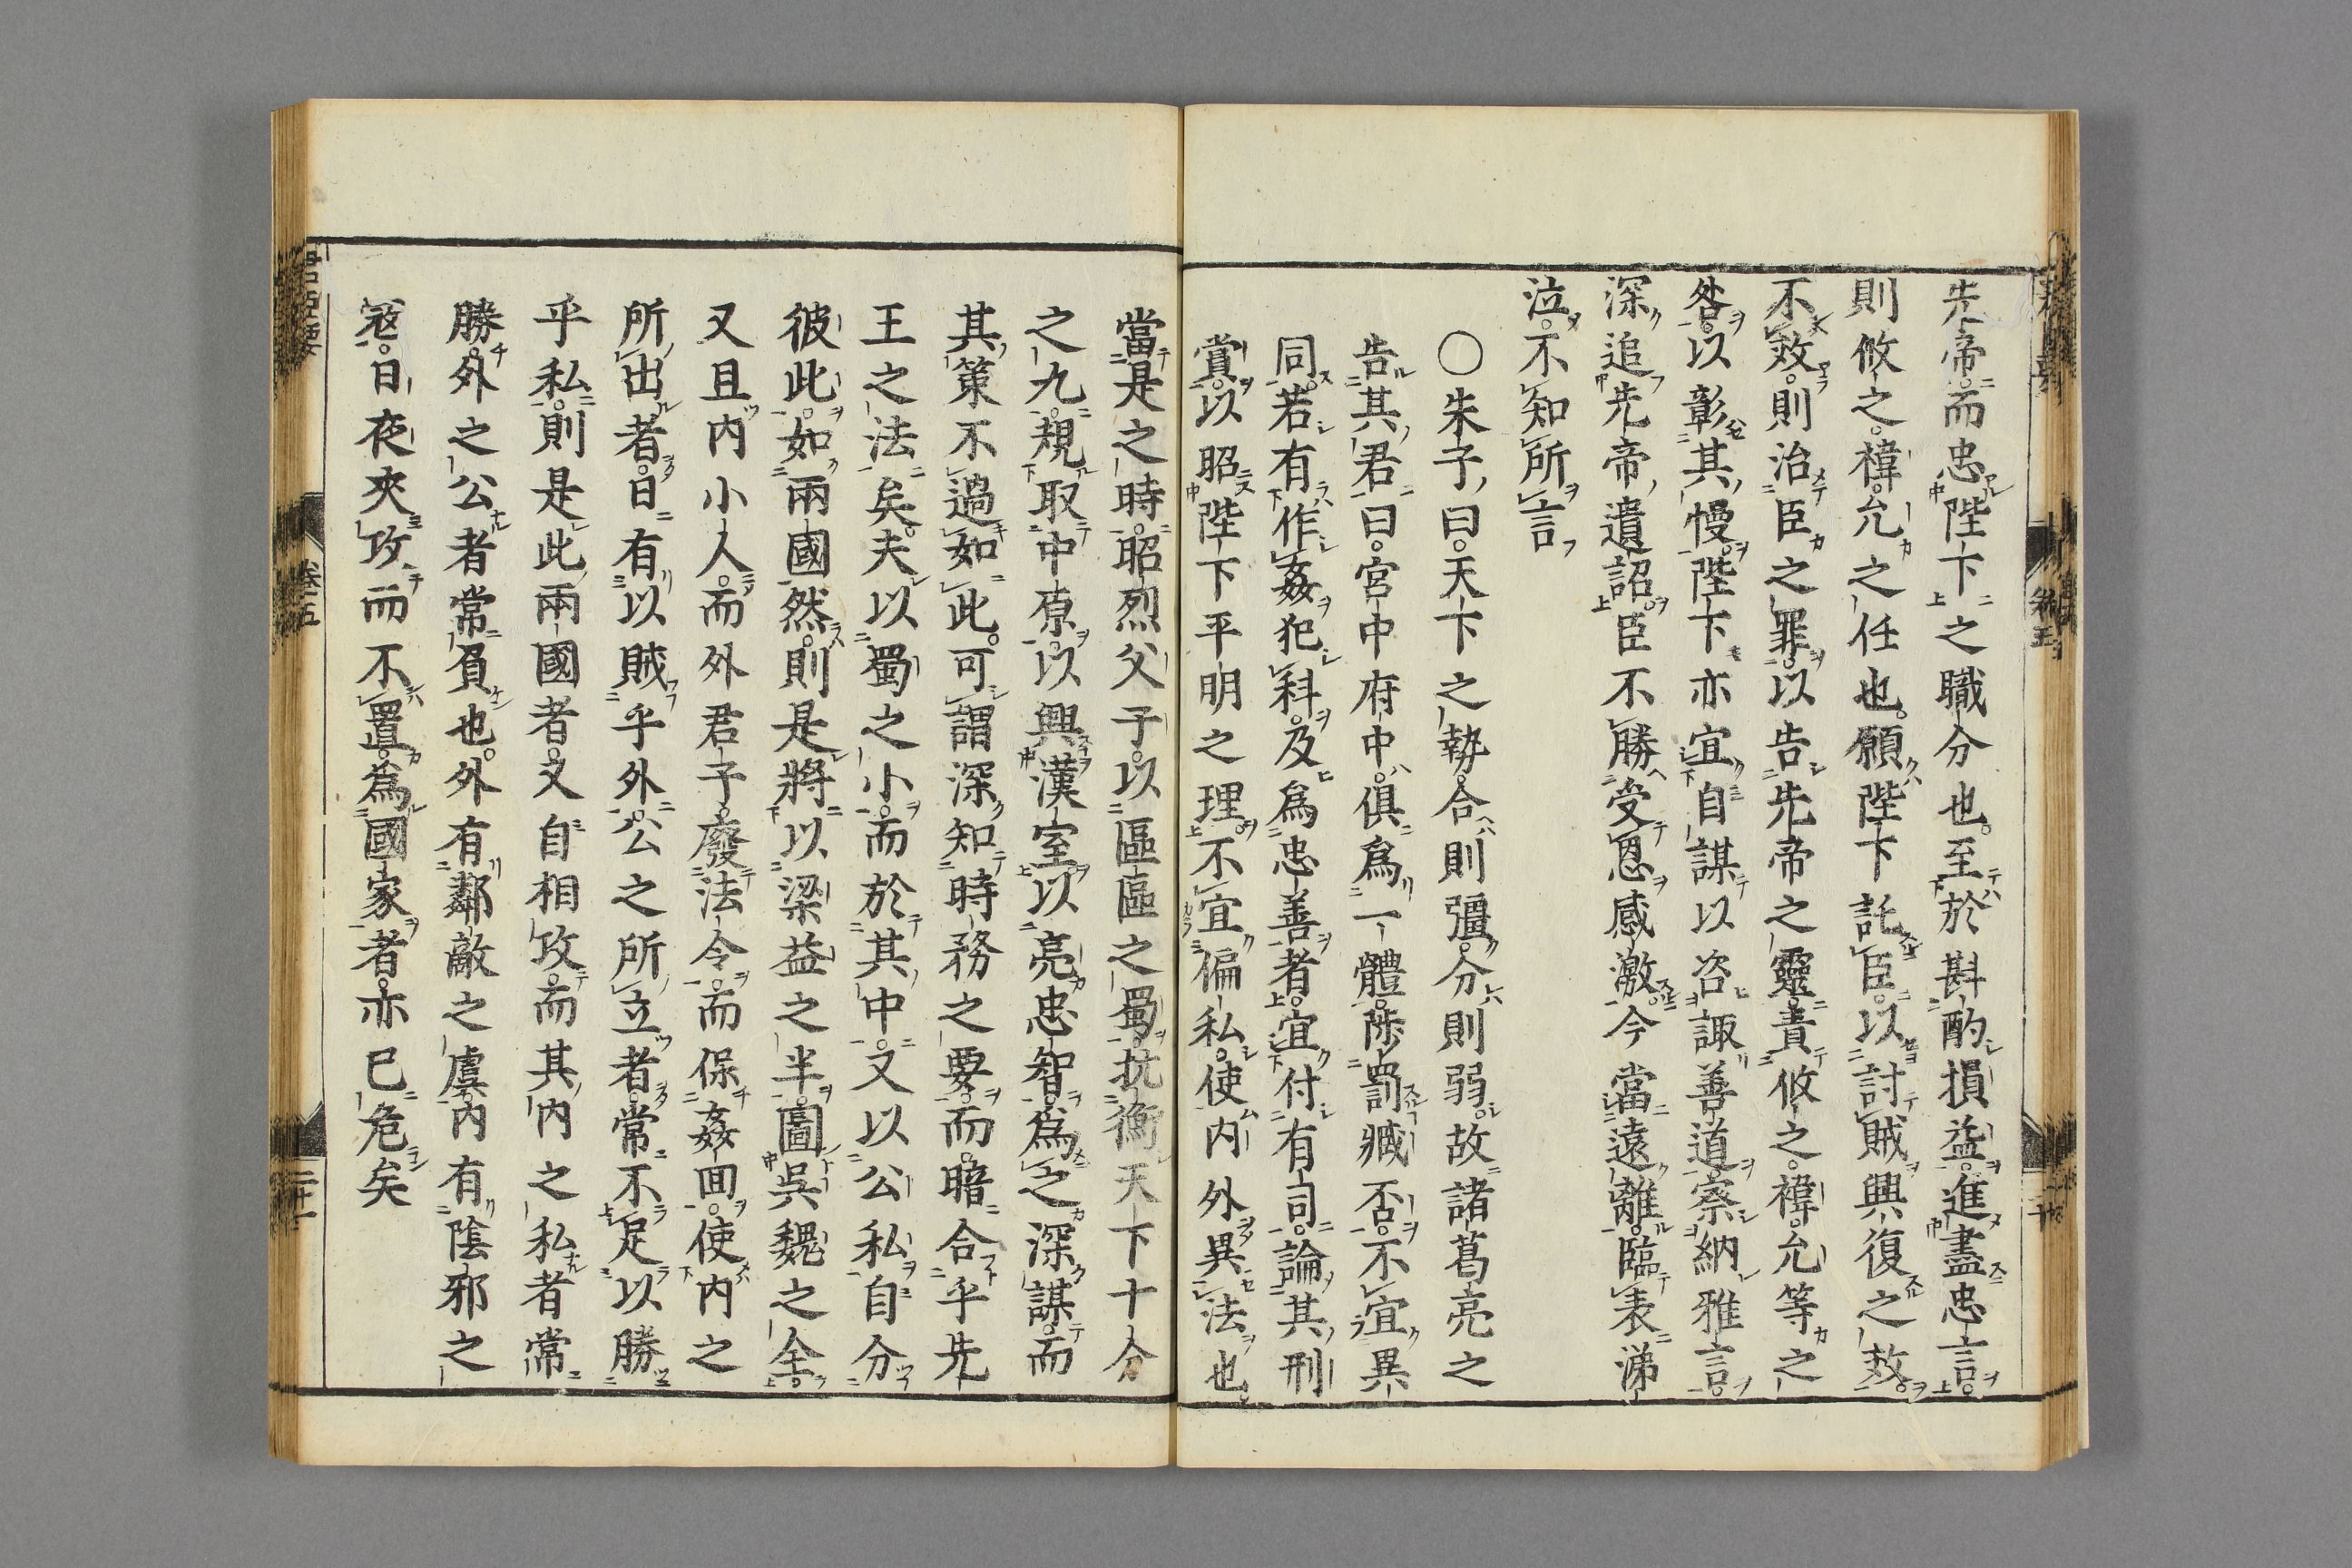 先帝而忠陛下之職分也至於斟酌損益進盡忠言
則攸之禕允之任也願陛下託臣以討賊興復之效
不效則治臣之罪以告先帝之靈責攸之禕允等之
咎以彰其慢陛下亦宜自謀以咨諏善道察納雅言
深追先帝遺詔臣不勝受恩感激今當遠離臨表涕
泣不知所言
○朱子曰天下之勢合則彊分則弱故諸葛亮之
告其君曰宮中府中俱爲一體陟罰臧否不宜異
同若有作姦犯科及爲忠善者宜付有司論其刑
賞以昭陛下平明之理不宜偏私使内外異法也
當是之時昭烈父子以區區之蜀抗衡天下十分
之九規取中原以興漢室以亮忠智爲之深謀而
其策不過如此可謂深知時務之要而暗合乎先
王之法矣夫以蜀之小而於其中又以公私自分
彼此如兩國然則是將以梁益之半圖吳魏之全
又且内小人而外君子廢法令而保姦回使内之
所出者日有以賊乎外公之所立者常不足以勝
乎私則是此兩國者又自相攻而其内之私者常
勝外之公者常負也外有鄰敵之虞内有陰邪之
寇日夜夾攻而不置爲國家者亦已危矣
卷五
二十一